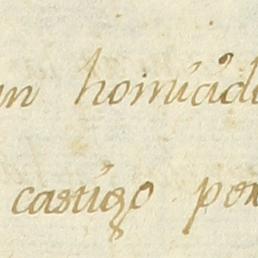 un homicid
castigo por